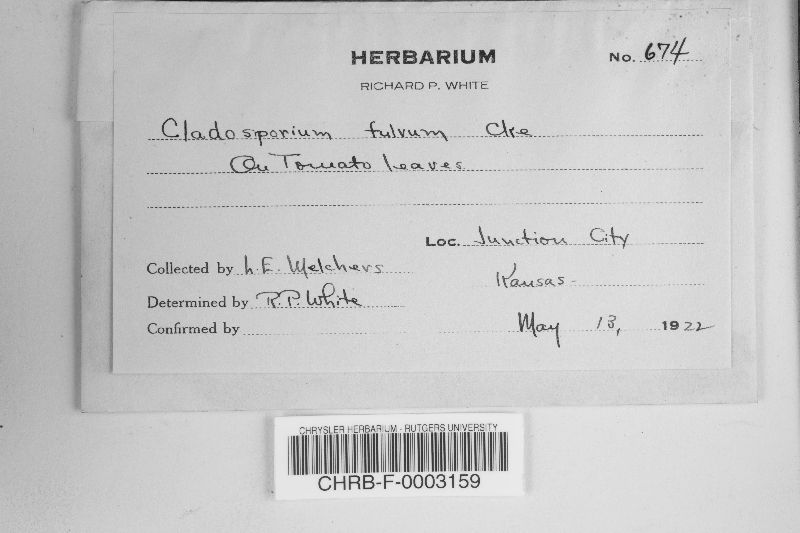 HERBARIUM
No. 674
RICHARD P. WHITE
Cladosporium fulvum Cke
On Tomato leaves
Loc. Junction City
Collected by L.E. Melchers
Kansas-
Determined by R.P. White
Confirmed by
May 13, 1922
CHRYSLER HERBARIUM - RUTGERS UNIVERSITY
CHRB-F-0003159